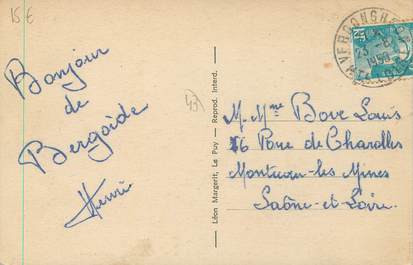 15 €
Bonjour
de
Bergoide
Henri
43
Léon Margerit, Le Puy — Reprod. Interd.
VERGONGHEON
1950
M. Mme Bove Louis
16 de Charolles
Montceau-les-Mines
Saône-et-Loire.